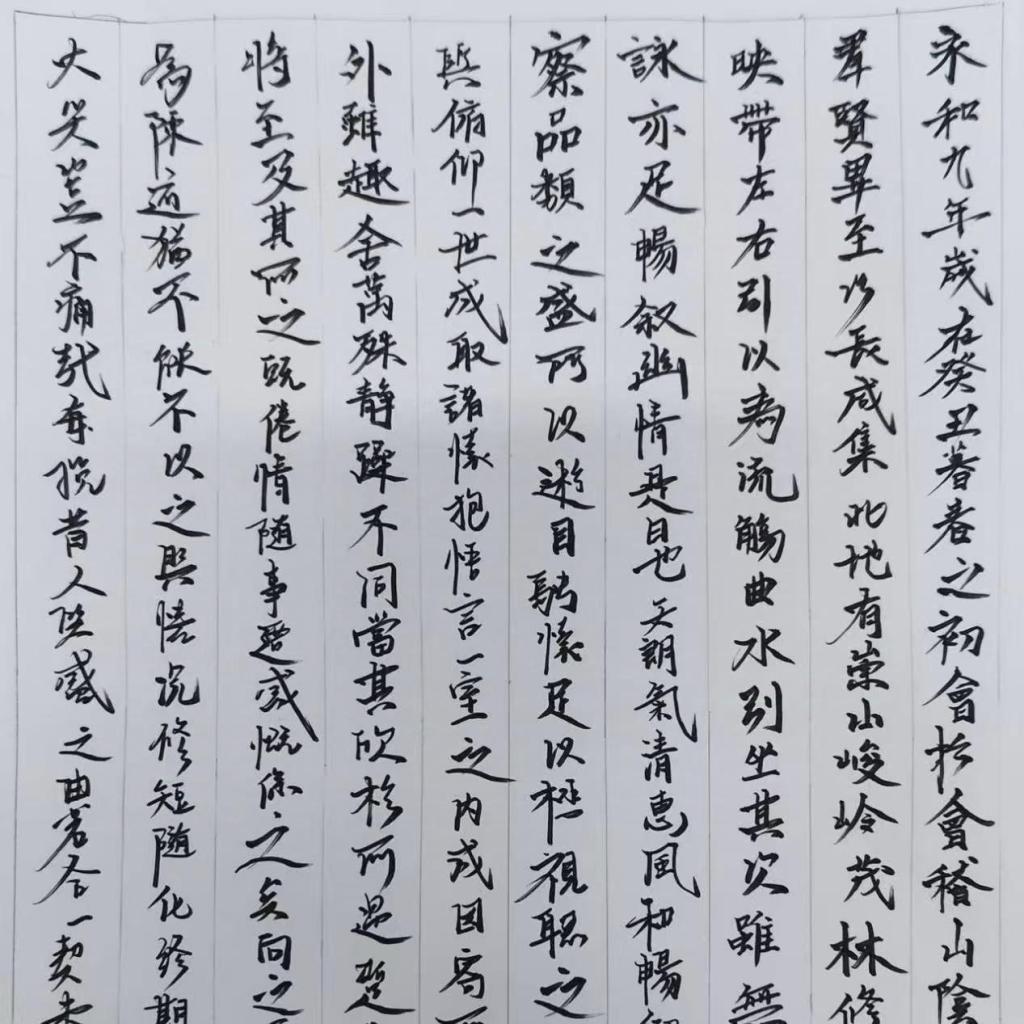 永和九年歲在癸丑暮春之初會於會稽山陰
羣賢畢至少長咸集此地有崇山峻岭茂林修
映帶左右引以為流觴曲水列坐其次雖無
詠亦足暢叙幽情是日也天朗氣清惠風和暢
察品類之盛所以遊目騁懷足以極視聽之
與俯仰一世或取諸懷抱悟言一室之內或因寄
外雖趣舍萬殊静躁不同當其欣於所遇蹔
將至及其所之既倦情隨事遷感慨係之矣向之
為陳迹猶不能不以之興懷况修短隨化終期
大矣豈不痛哉每攬昔人興感之由若合一契未